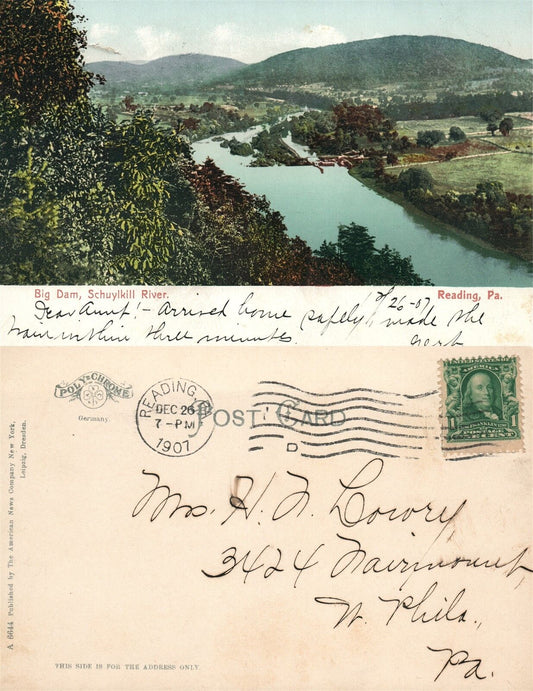 Big Dam, Schuylkill River.
Reading, Pa.
12/26-07
Dear Aunt! - Arrived home safely, made the
train within three minutes.
POLY-CHROME
Germany.
READING, PA.
DEC 26
7-PM
1907
POST CARD
D
U.S. POSTAGE
1
Mrs. H. N. Lowry
3424 Fairmount
W. Phila.
Pa.
A 6644 Published by The American News Company New York,
Leipzig, Dresden.
THIS SIDE IS FOR THE ADDRESS ONLY.